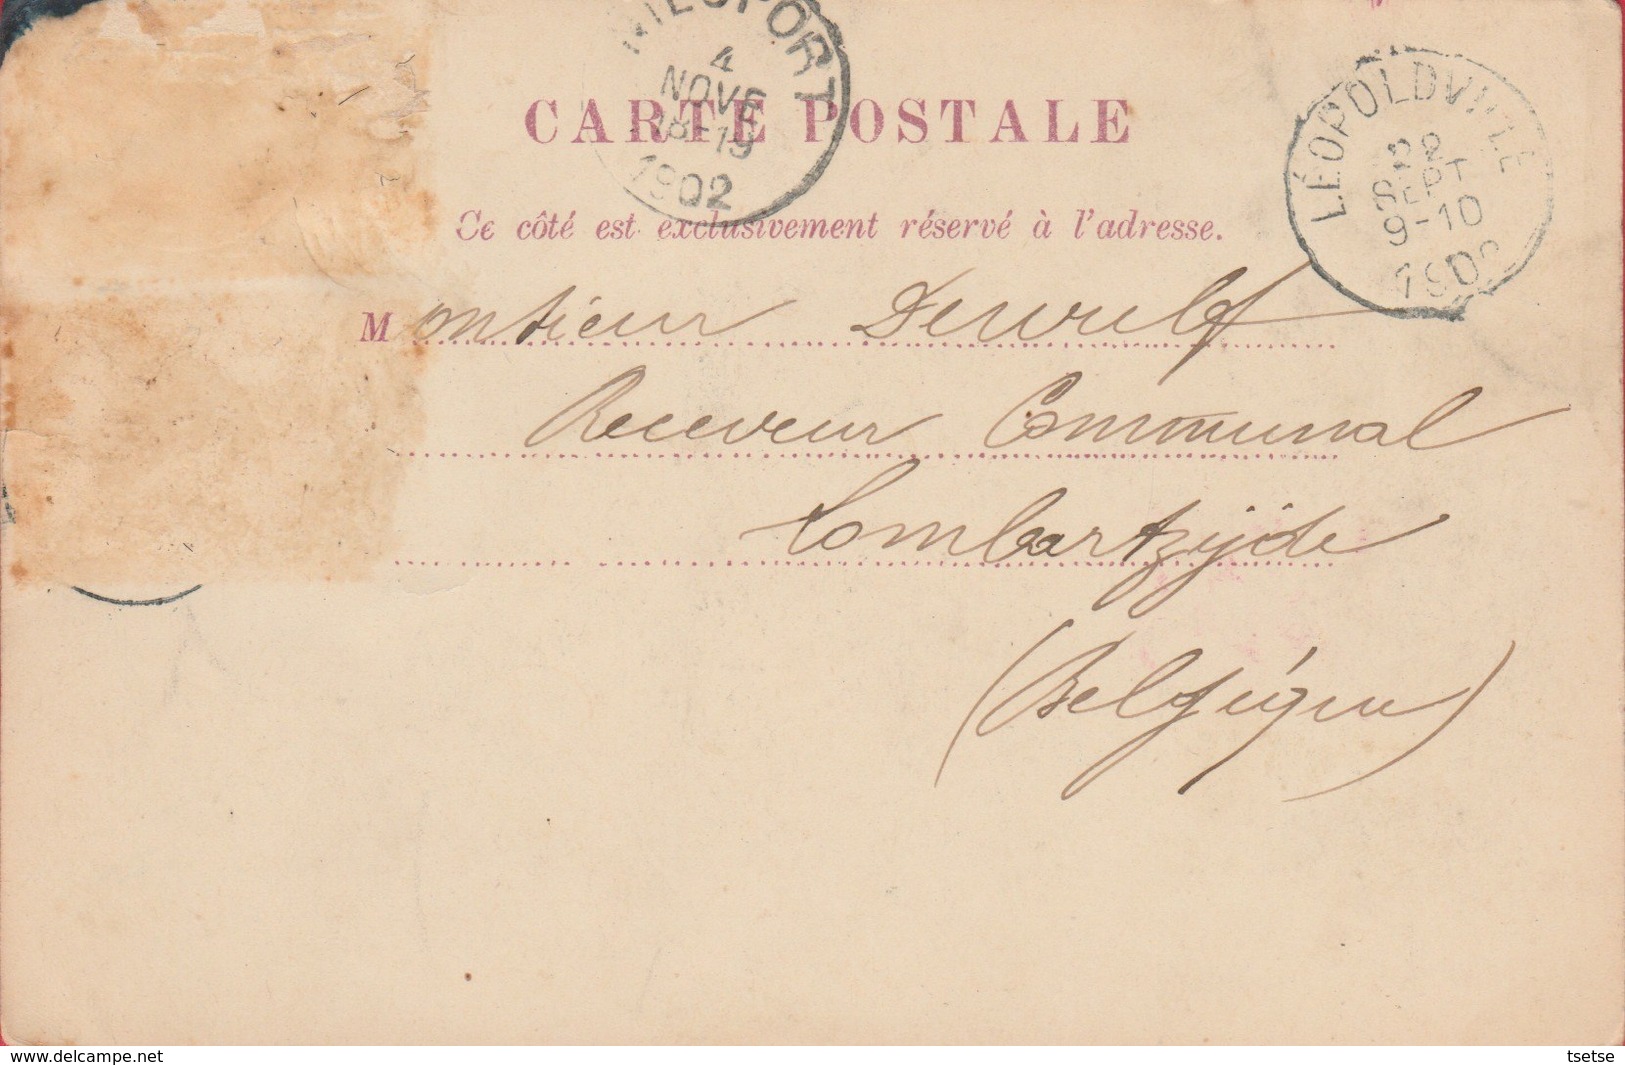 NIEUPORT
4
NOVE
18-19
1902
CARTE POSTALE
LÉOPOLDVILLE
22
SEPT
9-10
1902
Ce côté est exclusivement réservé à l'adresse.
Monsieur Dewulf
Receveur Communal
Lombartzijde
(Belgique)
www.delcampe.net
tsetse